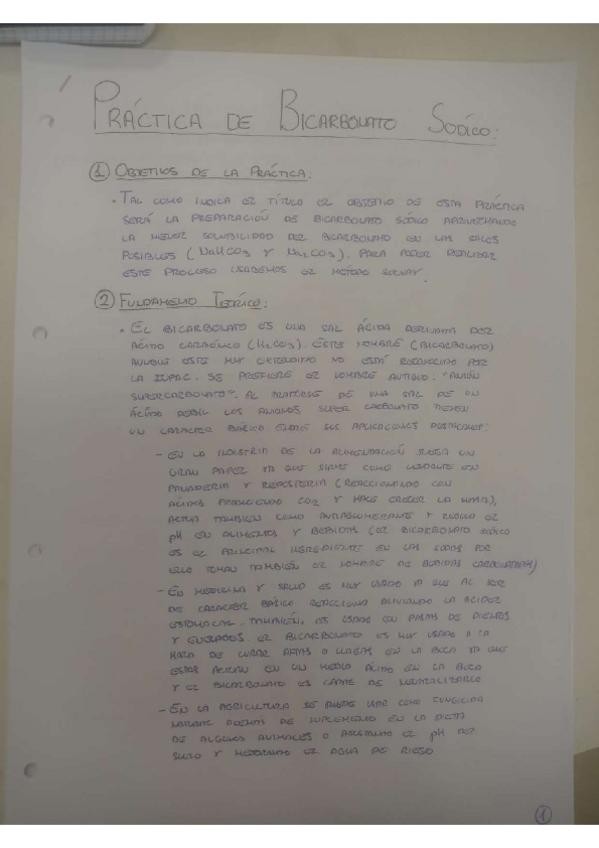 PRÁCTICA DE BICARBONATO SODÍCO:
① OBJETIVOS DE LA PRÁCTICA:
· TAL COMO INDICA EL TÍTULO EL OBJETIVO DE ESTA PRÁCTICA
SERÁ LA PREPARACIÓN DE BICARBONATO SÓDICO APROVECHANDO
LA MENOR SOLUBILIDAD DEL BICARBONATO EN LAS SALES
POSIBLES (NaHCO3 Y Na2CO3). PARA PODER REALIZAR
ESTE PROCESO USAREMOS EL METODO SOLVAY.
② FUNDAMENTO TEÓRICO:
· EL BICARBONATO ES UNA SAL ÁCIDA DERIVADA DEL
ÁCIDO CARBÓNICO (H2CO3). ESTE NOMBRE (BICARBONATO)
AUNQUE ESTE MUY EXTENDIDO NO ESTÁ RECONOCIDO POR
LA IUPAC. SE PREFIERE EL NOMBRE ANTIGUO: "ANIÓN
SUPERCARBONATO". AL TRATARSE DE UNA SAL DE UN
ÁCIDO DEBIL LOS ANIONES SUPER CARBONATO TIENEN
UN CARACTER BÁSICO ENTRE SUS APLICACIONES DESTACAMOS:
- EN LA INDUSTRIA DE LA ALIMENTACIÓN JUEGA UN
GRAN PAPEL YA QUE SIRVE COMO LEUDANTE EN
PANADERIA Y REPOSTERIA (REACCIONANDO CON
ÁCIDOS PRODUCIENDO CO2 Y HACE CRECER LA MASA),
ACTUA TAMBIÉN COMO ANTIAGLOMERANTE Y REDUCE EL
pH EN ALIMENTOS Y BEBIDAS (EL BICARBONATO SÓDICO
ES EL PRINCIPAL INGREDIENTE EN LAS SODAS POR
ELLO TOMAN TAMBIÉN EL NOMBRE DE BEBIDAS CARBONATADAS)
- EN MEDICINA Y SALUD ES MUY USADO YA QUE AL SER
DE CARACTER BÁSICO REACCIONA ALIVIANDO LA ACIDEZ
ESTOMACAL. TAMBIÉN, ES USADO EN PASTAS DE DIENTES
Y ENJUAGUES. EL BICARBONATO ES MUY USADO A LA
HORA DE CURAR AFTAS O LLAGAS EN LA BOCA YA QUE
ESTAS ACTUAN EN UN MEDIO ÁCIDO EN LA BOCA
Y EL BICARBONATO ES CAPAZ DE NEUTRALIZARLO
- EN LA AGRICULTURA SE PUEDE USAR COMO FUNGICIDA
NATURAL ADEMAS DE SUPLEMENTO EN LA DIETA
DE ALGUNOS ANIMALES O AJUSTANDO EL pH DEL
SUELO Y MEJORANDO EL AGUA DE RIEGO
①